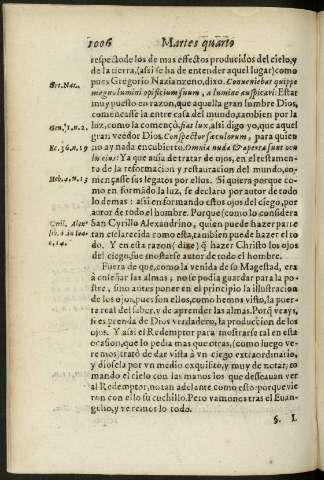 1006 Martes quarto
respecto de los demas effectos producidos del cielo, y
de la tierra, (assi se ha de entender aquel lugar) como
Ort. Naz. pues Gregorio Nazianzeno, dixo. Conueniebat quippe
magno lumini opificium suum, a lumine auspicari: Estar
muy puesto en razon, que aquella gran lumbre Dios,
començasse la entre casa del mundo, tambien por la
Gen, 1, n. 2. luz, como la començò, fiat lux, assi digo yo, que aquel
gran veedor Dios. Conspector sæculorum, para quien
Ec. 36. n. 19 no ay nada encubierto. Omnia nuda & aperta sunt ocu
lis eius: Ya que auia de tratar de ojos, en el testamen-
to de la reformacion y restauracion del mundo, co-
Heb. 4. n. 13 mençasse sus legatos por ellos. Si quiera porque co-
mo en formãdo la luz, se declaro por autor de todo
lo demas: assi enformando estos ojos del ciego, por
autor de todo el hombre. Porque (como lo considera
Ciril. Alex San Cyrillo Alexandrino, quien puede hazer parte
tan esclarecida como esta, tambien puede hazer el to
do. Y en esta razon (dize) q̃ hazer Christo los ojos
del ciego, fue mostrarse autor de todo el hombre.
Fuera de que, como la venida de su Magestad, era
à enseñar las almas, no se podia guardar para la po-
stre, sino antes poner en el principio la illustracion
de los ojos, pues son ellos, como hemos visto, la puer-
ta real del saber, y de aprender las almas. Porq̃ veays,
si es prenda de Dios verdadero, la produccion de los
ojos. Y assi el Redemptor para mostrarse tal en esta
ocasion, que lo pedia mas que otras, (como luego ve-
remos) tratò de dar vista à vn ciego extraordinario,
y diosela por vn medio exquisito, y muy de notar, to
mando el cielo con las manos los que desseauan ver
al Redemptor, no tan adelante como esto: porque vie
ron con ello su cuchillo. Pero vamonos tras el Euan-
gelio, y veremos lo todo.
§. I.